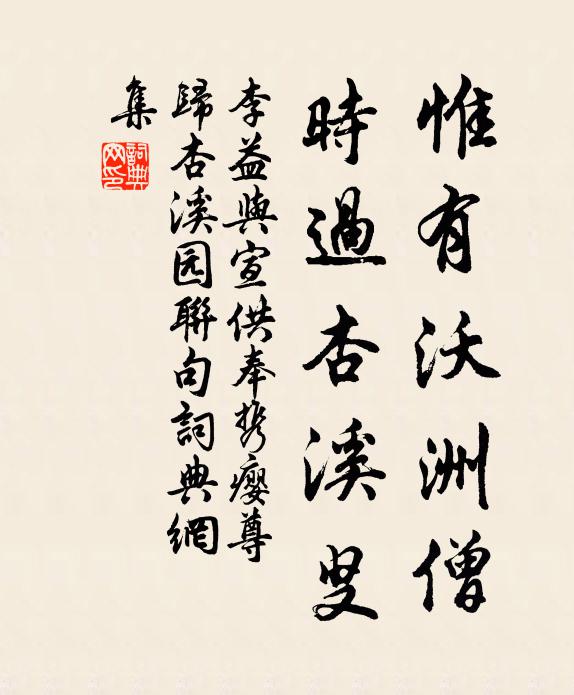 惟有沃洲僧
時過杏溪叟
李益與宣供奉携瘿尊
歸杏溪园聯句詞典網
集
詞典
网印